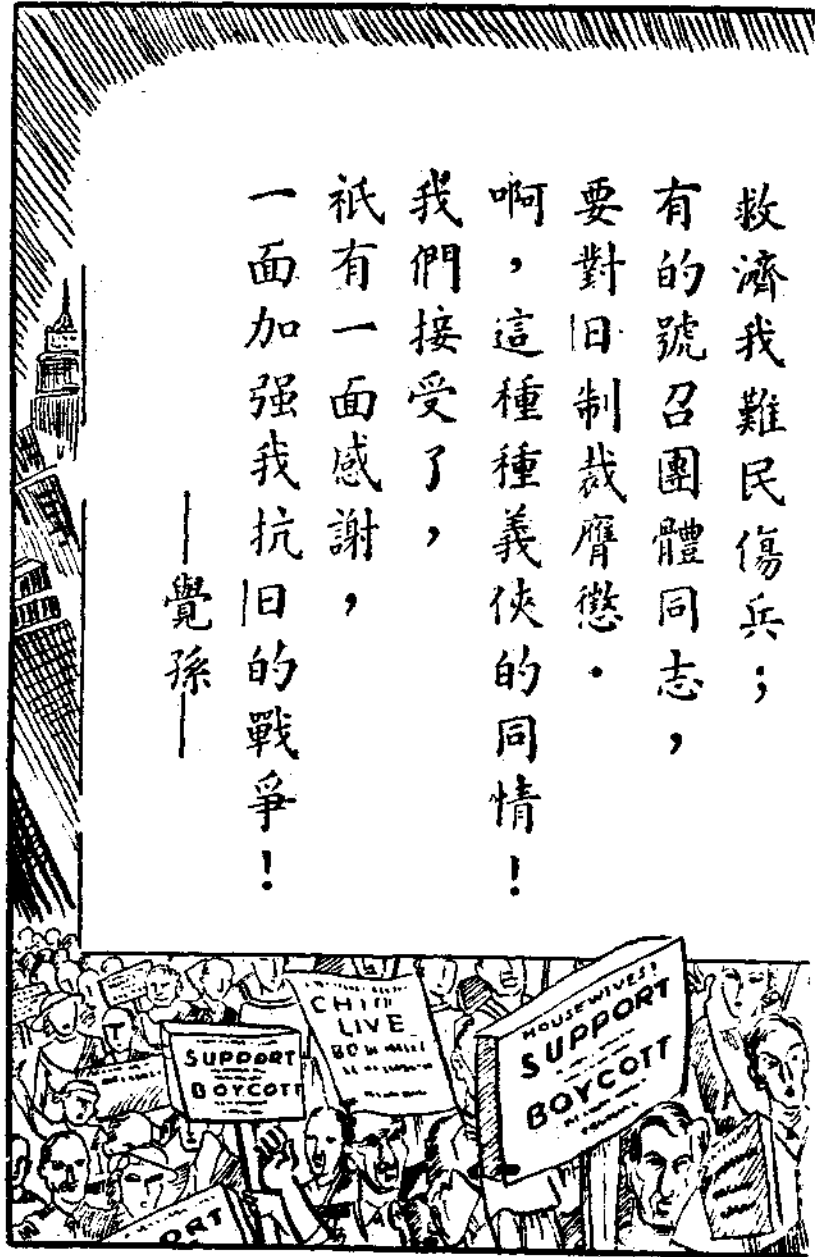 救濟我難民傷兵；
有的號召團體同志，
要對旧制裁膺懲．
啊，這種種義俠的同情！
我們接受了，
祇有一面感謝，
一面加强我抗旧的戰爭！
——覺孫——
SUPPORT
BOYCOTT
LIVE
HOUSEWIVES!
SUPPORT
BOYCOTT